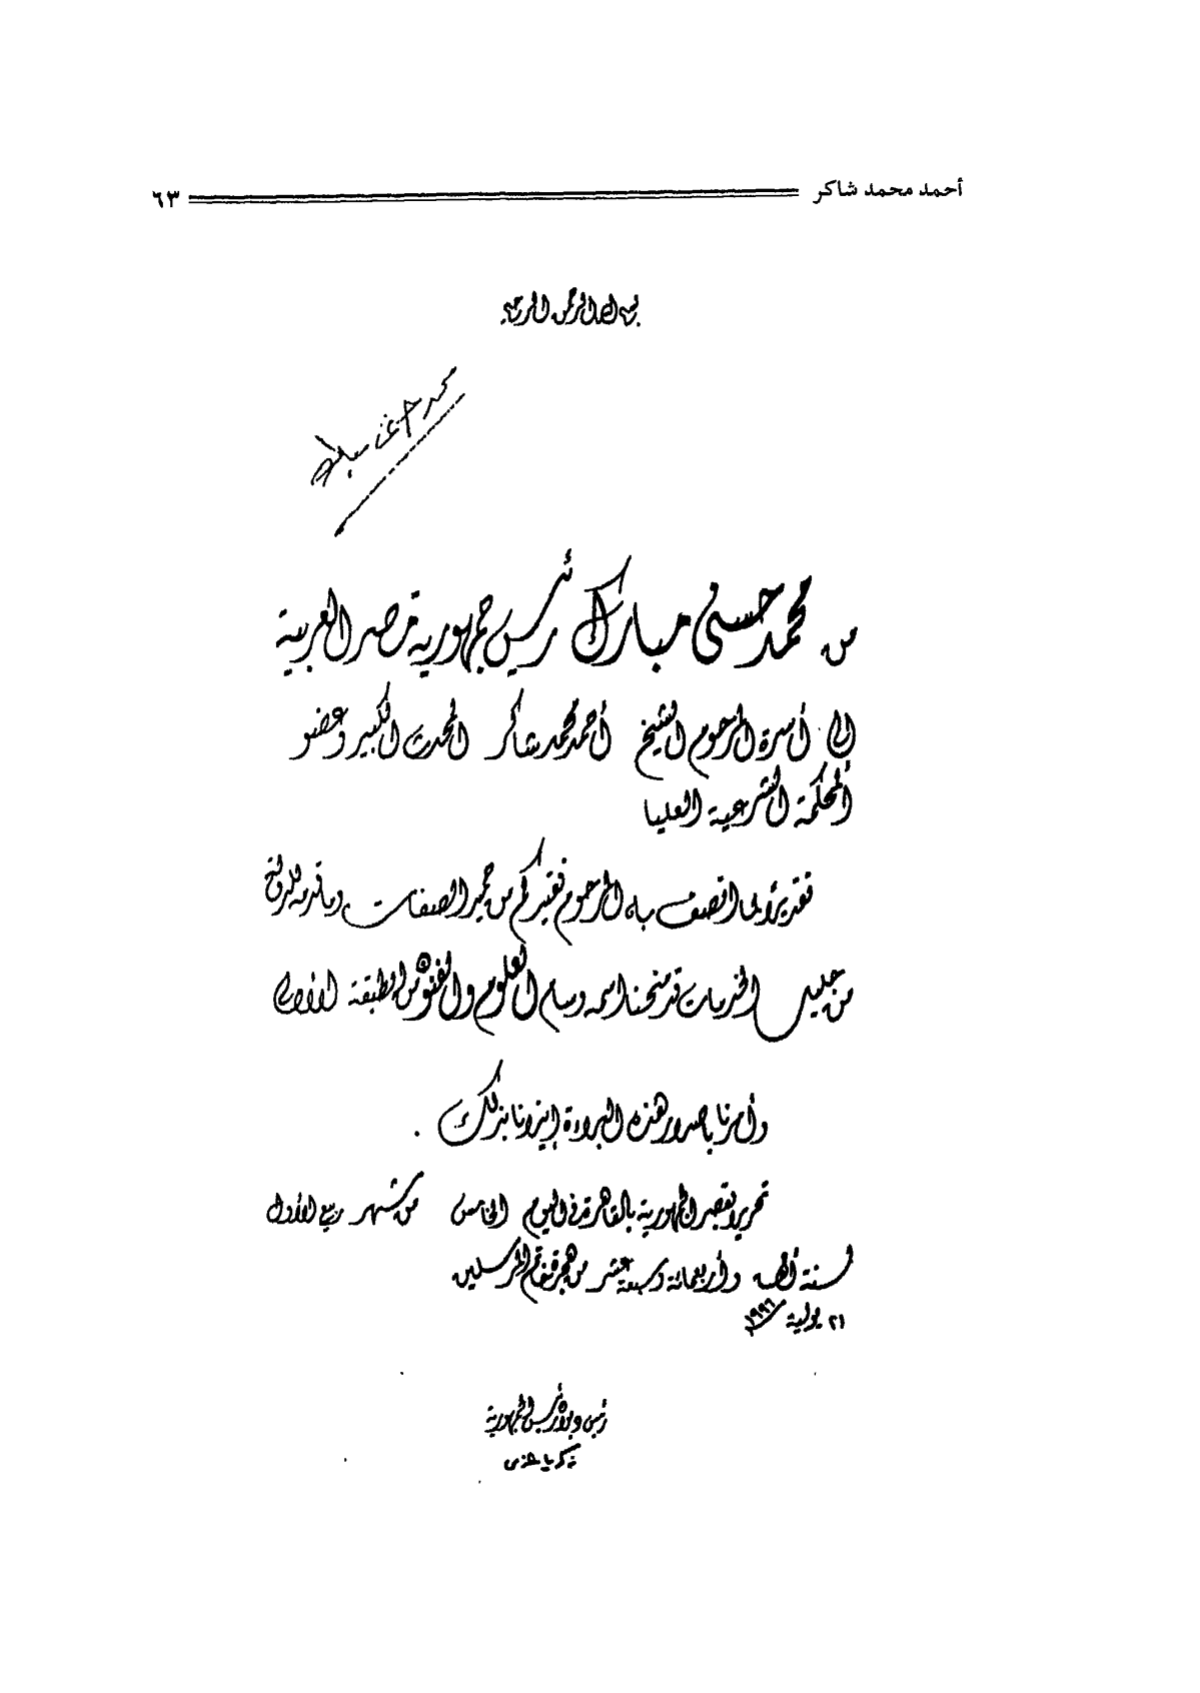 أحمد محمد شاكر ٦٣
بسم الله الرحمن الرحيم
محمد حسني مبارك
من محمد حسني مبارك رئيس جمهورية مصر العربية
إلى أسرة المرحوم الشيخ أحمد محمد شاكر المحدث الكبير وعضو
المحكمة الشرعية العليا
تقديراً لما اتصف به المرحوم فقيدكم من حميد الصفات وما قدمه للدولة
من جليل الخدمات قد منحنا اسمه وسام العلوم والفنون من الطبقة الأولى
وأمرنا بإصدار هذه البراءة إيذانا بذلك .
تحريرا بقصر الجمهورية بالقاهرة في اليوم الخامس من شهر ربيع الأول
لسنة ألف وأربعمائة وسبعة عشر من هجرة خاتم المرسلين
٢١ يولية ١٩٩٦
رئيس ديوان رئيس الجمهورية
زكريا عزمى